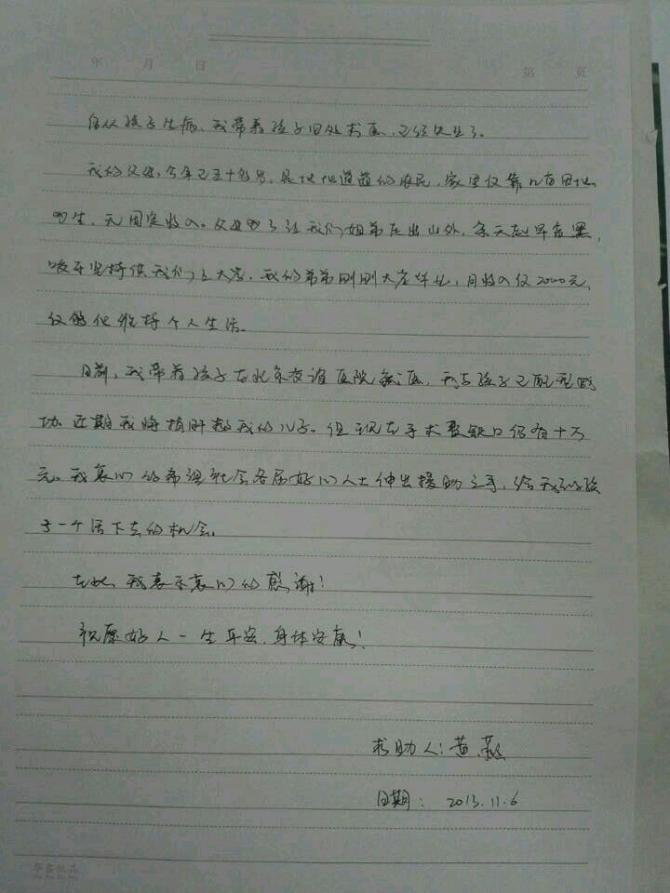 年 月 日
第 页
自从孩子生病,我带着孩子四处求医,已经失业了。
我的父母,今年已五十多岁,是地地道道的农民,家里仅靠几亩田地
为生,无固定收入。父母为了让我们姐弟走出山外,余天起早贪黑,
咬牙坚持供我们上大学,我的弟弟刚刚大学毕业,月收入仅2000元,
仅能维持个人生活。
目前,我带着孩子在北京友谊医院就医,我与孩子已配型成
功。近期我将捐肝救我的儿子。但现在手术费缺口仍有十万
元。我衷心的希望社会各届好心人士伸出援助之手,给我的孩
子一个活下去的机会。
在此,我表示衷心的感谢!
祝愿好人一生平安,身体安康!
求助人:黄
日期: 2013.11.6